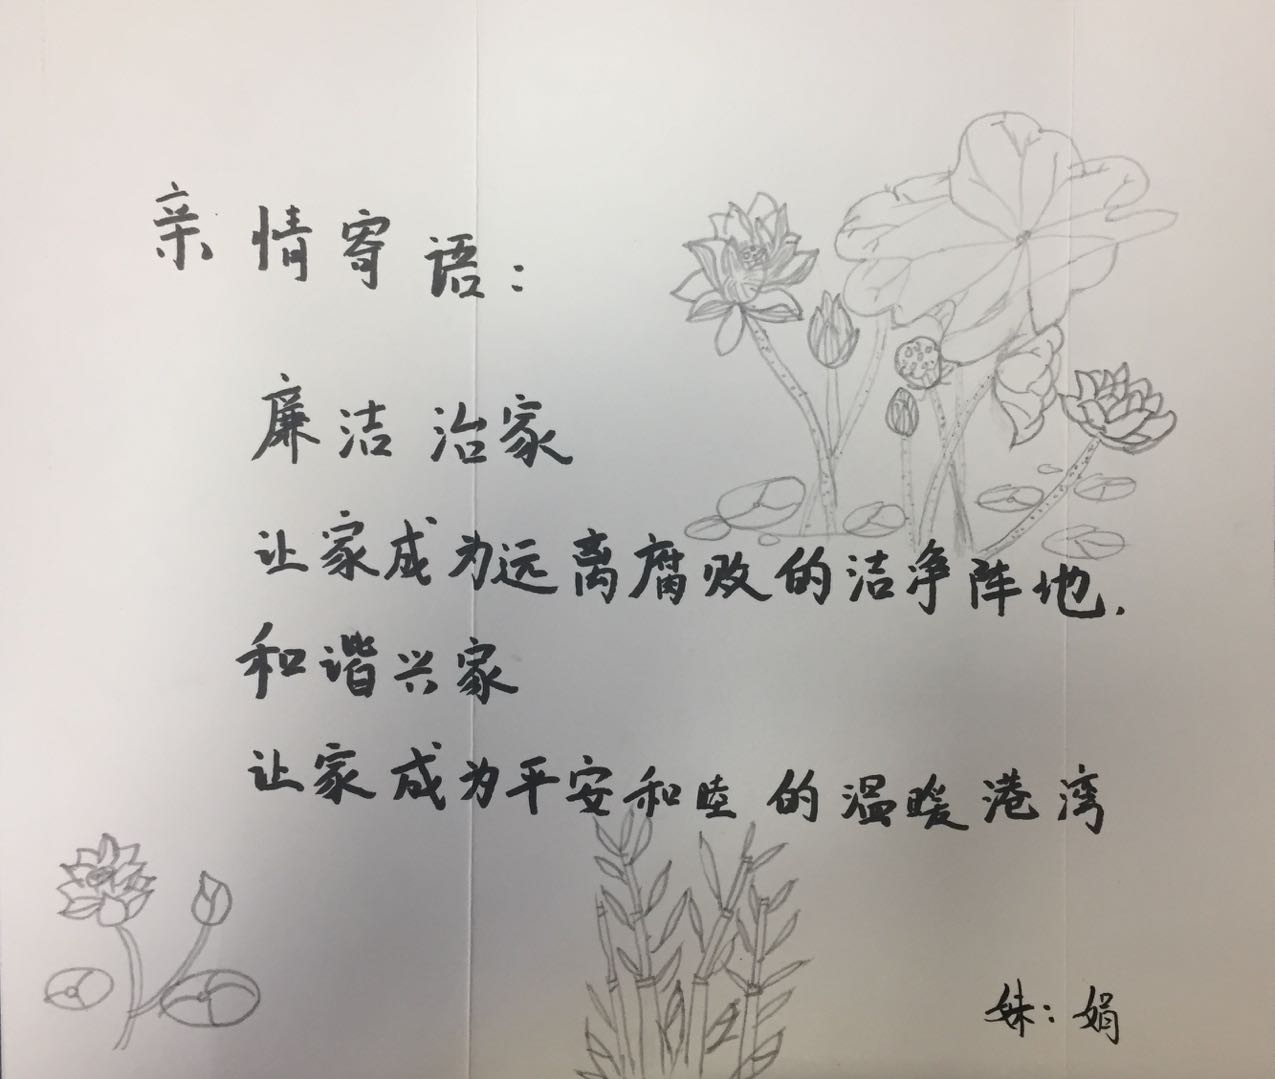 亲情寄语：
廉洁治家
让家成为远离腐败的洁净阵地.
和谐兴家
让家成为平安和睦的温暖港湾
妹：娟